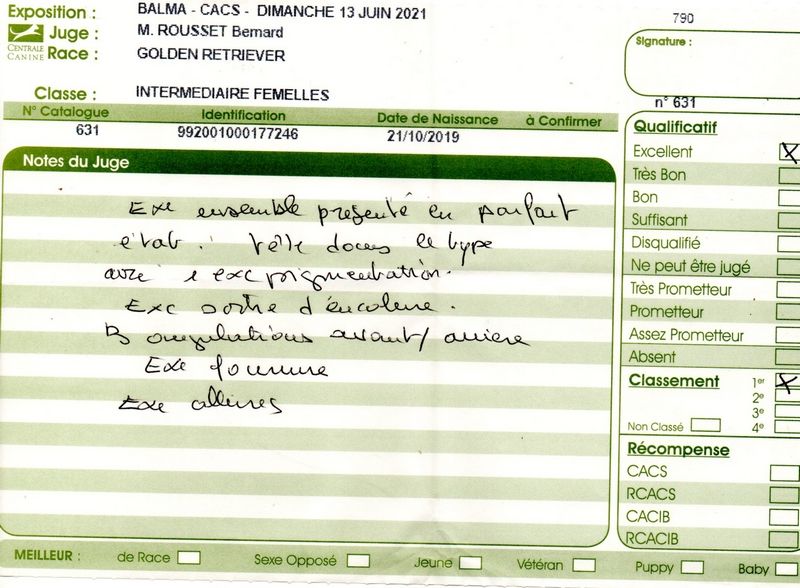 Exposition : BALMA - CACS - DIMANCHE 13 JUIN 2021
790
Juge : M. ROUSSET Bernard
CENTRALE CANINE
Race : GOLDEN RETRIEVER
Signature :
Classe : INTERMEDIAIRE FEMELLES
n° 631
N° Catalogue Identification Date de Naissance à Confirmer
631 992001000177246 21/10/2019
Notes du Juge
Exc ensemble présenté en parfait
état. tête dans le type
avec 1 exc pigmentation.
Exc sortie d'encolure.
B angulations avant/arrière
Exc fourrure
Exc allures
Qualificatif
Excellent X
Très Bon
Bon
Suffisant
Disqualifié
Ne peut être jugé
Très Prometteur
Prometteur
Assez Prometteur
Absent
Classement 1er X
2e
3e
Non Classé 4e
Récompense
CACS
RCACS
CACIB
RCACIB
MEILLEUR : de Race Sexe Opposé Jeune Vétéran Puppy Baby